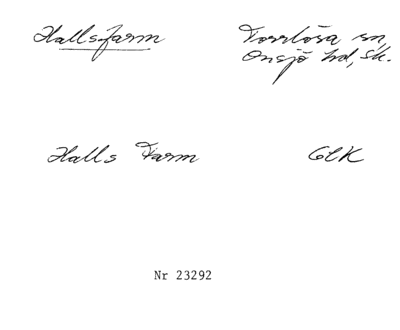 Hallsfarm
Torrlösa sn,
Onsjö hd, Sk.
Halls Farm
GEK
Nr 23292